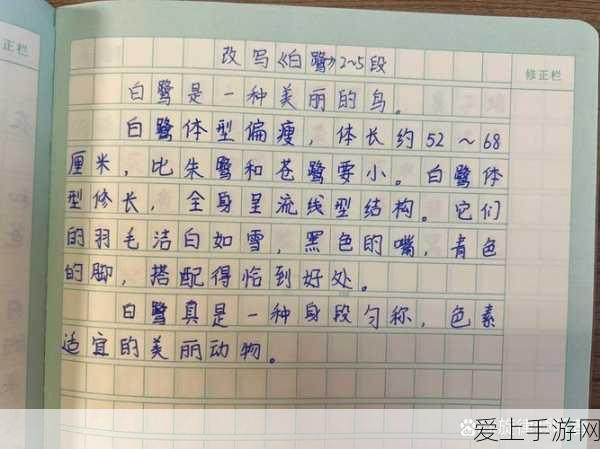 正栏
修正栏
改写《白鹭》2~5段
白鹭是一种美丽的鸟。
白鹭体型偏瘦，体长约52～68
厘米，比朱鹭和苍鹭要小。白鹭体
型修长，全身呈流线型结构。它们
的羽毛洁白如雪，黑色的嘴，青色
的脚，搭配得恰到好处。
白鹭真是一种身段匀称，色素
适宜的美丽动物。
爱上手游网